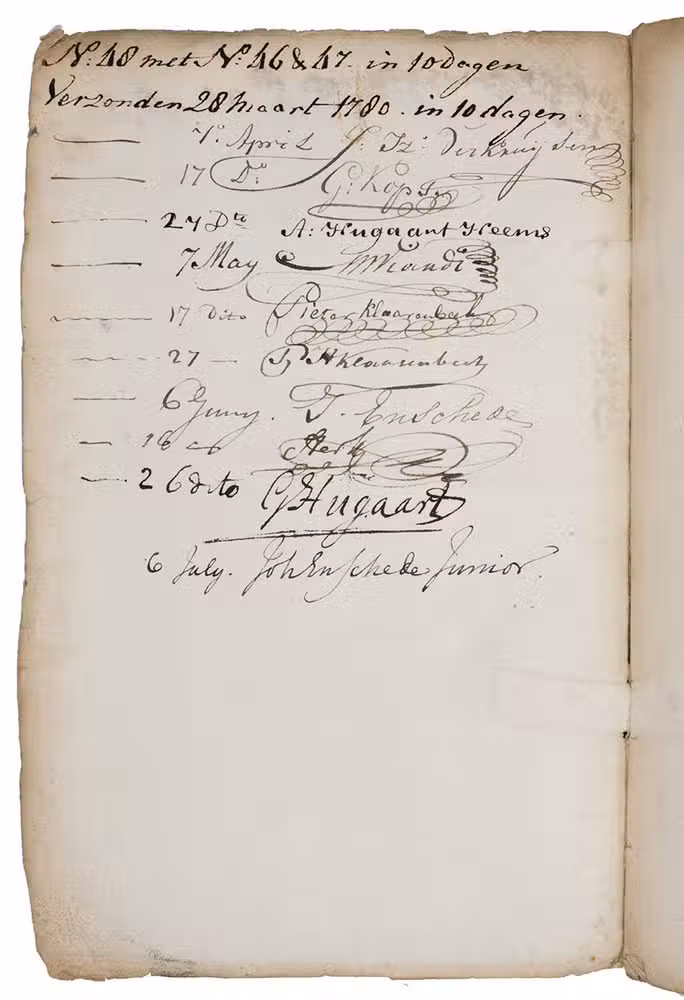 No: 48 met No. 46 & 47. in 10 dagen
Verzonden 28 maart 1780. in 10 dagen.
7 April
17 Do. G: Kops
27 Dto A: Hugaart Heems
7 May
17 dito Pieter Klaarenbeek
27 — Klaarenbeek
6 Juny. J. Enschede
16 do
26 dito G Hugaart
6 July. Joh Enschede Junior.